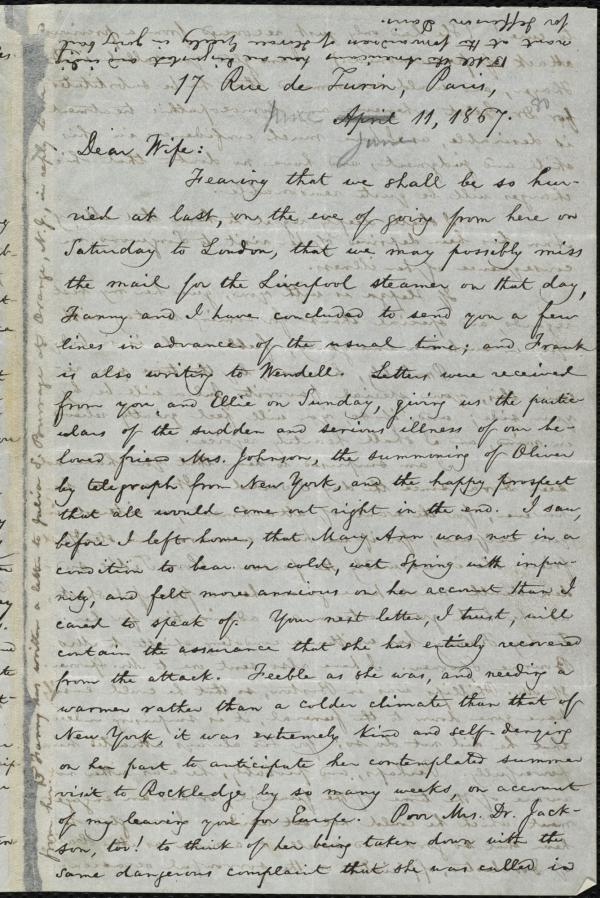 17 Rue de Turin, Paris,
April 11, 1867.
June
Dear Wife:
Fearing that we shall be so hur-
ried at last, on the eve of going from here on
Saturday to London, that we may possibly miss
the mail for the Liverpool steamer on that day,
Fanny and I have concluded to send you a few
lines in advance of the usual time; and Frank
is also writing to Wendell. Letters were received
from you and Ellie on Sunday, giving us the partic-
ulars of the sudden and serious illness of our be-
loved friend Mrs. Johnson, the summoning of Oliver
by telegraph from New York, and the happy prospect
that all would come out right in the end. I saw,
before I left home, that Mary Ann was not in a
condition to bear our cold, wet Spring with impu-
nity, and felt more anxious on her account than I
cared to speak of. Your next letter, I trust, will
contain the assurance that she has entirely recovered
from the attack. Feeble as she was, and needing a
warmer rather than a colder climate than that of
New York, it was extremely kind and self-denying
on her part to anticipate her contemplated summer
visit to Rockledge by so many weeks, on account
of my leaving you for Europe. Poor Mrs. Dr. Jack-
son, too! to think of her being taken down with the
same dangerous complaint that she was called in
All the Americans here are disgusted and indig-
nant at the for Jefferson Davis.
Fanny has written a letter to Julia of Orange, N.J., in reply to
from her.